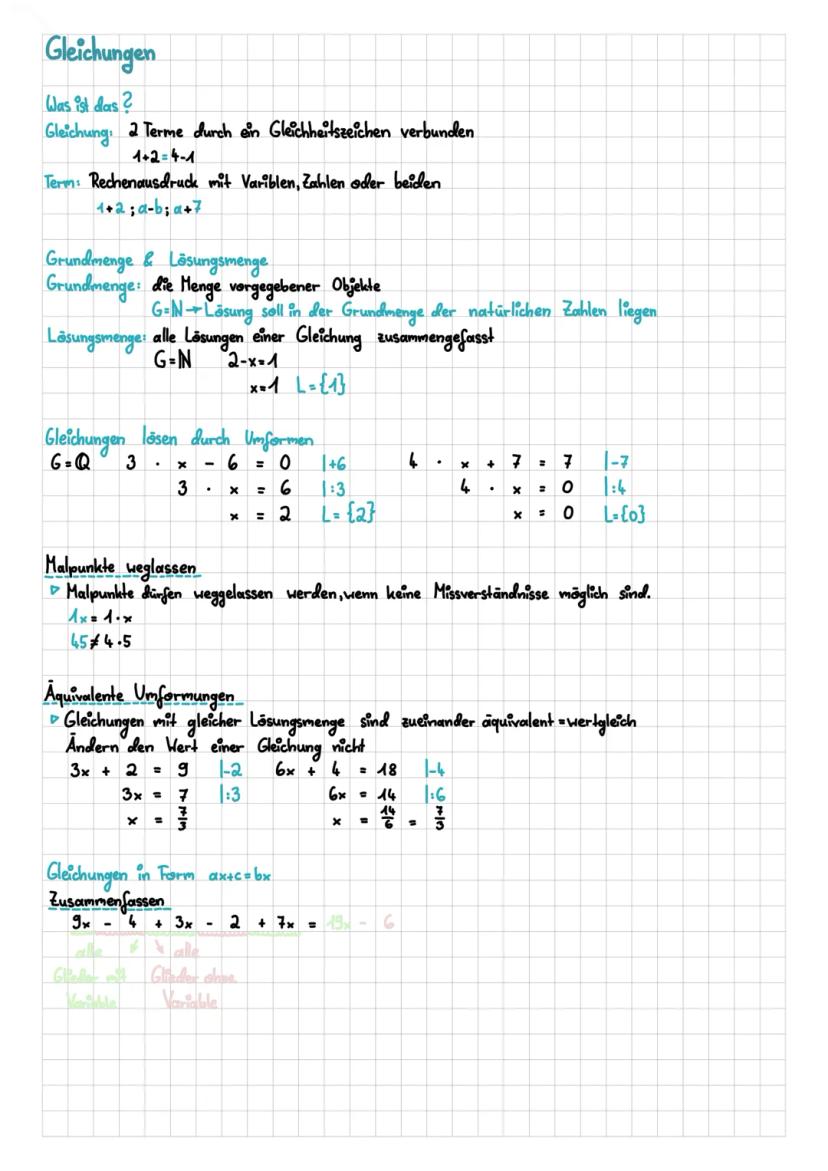 Gleichungen
Was ist das?
Gleichung: 2 Terme durch ein Gleichheitszeichen verbunden
1+2=4-1
Term: Rechenausdruck mit Variblen, Zahlen oder beiden
1+2; a-b; a+7
Grundmenge & Lösungsmenge
Grundmenge: die Menge vorgegebener Objekte
G=ℕ → Lösung soll in der Grundmenge der natürlichen Zahlen liegen
Lösungsmenge: alle Lösungen einer Gleichung zusammengefasst
G=ℕ 2-x=1
x=1 L={1}
Gleichungen lösen durch Umformen
G=ℚ 3 · x - 6 = 0 |+6 4 · x + 7 = 7 |-7
3 · x = 6 |:3 4 · x = 0 |:4
x = 2 L={2} x = 0 L={0}
Malpunkte weglassen
▷ Malpunkte dürfen weggelassen werden, wenn keine Missverständnisse möglich sind.
1x = 1·x
45≠4·5
Äquivalente Umformungen
▷ Gleichungen mit gleicher Lösungsmenge sind zueinander äquivalent = wertgleich
Ändern den Wert einer Gleichung nicht
3x + 2 = 9 |-2 6x + 4 = 18 |-4
3x = 7 |:3 6x = 14 |:6
x = 7/3 x = 14/6 = 7/3
Gleichungen in Form ax+c=bx
Zusammenfassen
9x - 4 + 3x - 2 + 7x = 19x - 6
alle ↙ ↘ alle
Glieder mit Glieder ohne
Variable Variable